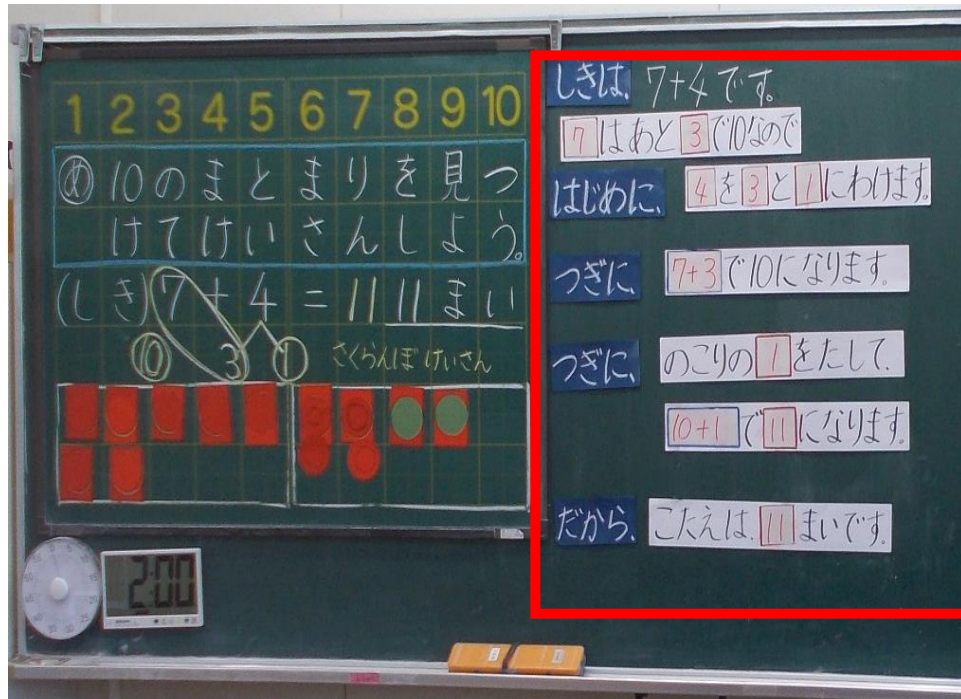 1 2 3 4 5 6 7 8 9 10
め 10のまとまりを見つ
けてけいさんしよう。
(しき) 7 + 4 = 11 11まい
10 3 1 さくらんぼけいさん
しきは、7+4です。
7はあと3で10なので
はじめに、4を3と1にわけます。
つぎに、7+3で10になります。
つぎに、のこりの1をたして、
10+1で11になります。
だから、こたえは、11まいです。
2:00